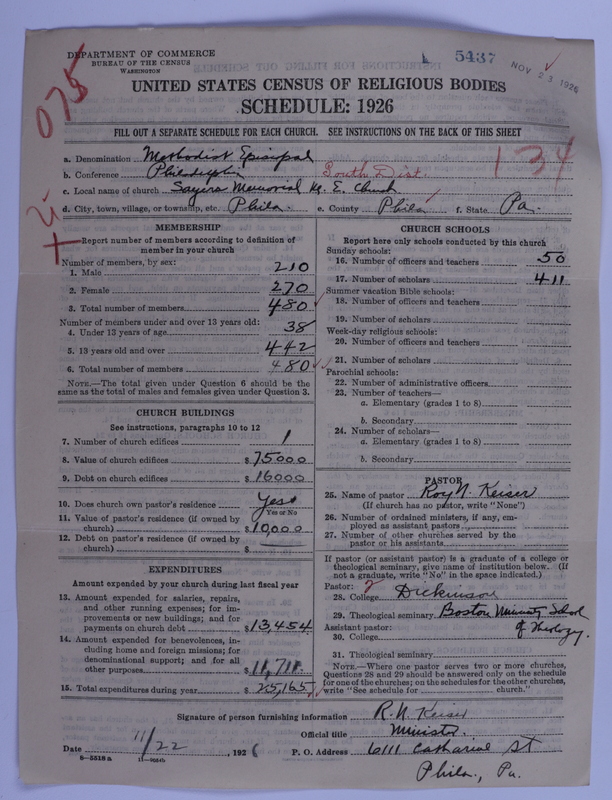 DEPARTMENT OF COMMERCE
BUREAU OF THE CENSUS
WASHINGTON
5437
NOV 23 1926
075
UNITED STATES CENSUS OF RELIGIOUS BODIES
SCHEDULE: 1926
FILL OUT A SEPARATE SCHEDULE FOR EACH CHURCH. SEE INSTRUCTIONS ON THE BACK OF THIS SHEET
a. Denomination Methodist Episcopal
134
b. Conference Philadelphia South Dist.
c. Local name of church Sayers Memorial M. E. Church
d. City, town, village, or township, etc. Phila. e. County Phila f. State Pa.
MEMBERSHIP
Report number of members according to definition of member in your church
Number of members, by sex:
1. Male 210
2. Female 270
3. Total number of members 480
Number of members under and over 13 years old:
4. Under 13 years of age 38
5. 13 years old and over 442
6. Total number of members 480
NOTE.—The total given under Question 6 should be the
same as the total of males and females given under Question 3.
CHURCH BUILDINGS
See instructions, paragraphs 10 to 12
7. Number of church edifices 1
8. Value of church edifices $ 75000
9. Debt on church edifices $ 16000
10. Does church own pastor's residence Yes
Yes or No
11. Value of pastor's residence (if owned by
church) $ 10,000
12. Debt on pastor's residence (if owned by
church) $
EXPENDITURES
Amount expended by your church during last fiscal year
13. Amount expended for salaries, repairs,
and other running expenses; for im-
provements or new buildings; and for
payments on church debt $ 13,454
14. Amount expended for benevolences, in-
cluding home and foreign missions; for
denominational support; and for all
other purposes $ 11,711
15. Total expenditures during year $ 25,165
CHURCH SCHOOLS
Report here only schools conducted by this church
Sunday schools:
16. Number of officers and teachers 50
17. Number of scholars 411
Summer vacation Bible schools:
18. Number of officers and teachers
19. Number of scholars
Week-day religious schools:
20. Number of officers and teachers
21. Number of scholars
Parochial schools:
22. Number of administrative officers
23. Number of teachers—
a. Elementary (grades 1 to 8)
b. Secondary
24. Number of scholars—
a. Elementary (grades 1 to 8)
b. Secondary
PASTOR
25. Name of pastor Roy N. Keiser
(If church has no pastor, write "None")
26. Number of ordained ministers, if any, em-
ployed as assistant pastors
27. Number of other churches served by the
pastor or his assistants
If pastor (or assistant pastor) is a graduate of a college or
theological seminary, give name of institution below. (If
not a graduate, write "No" in the space indicated.)
Pastor: 2
28. College Dickinson
29. Theological seminary Boston University School
of Theology.
Assistant pastor:
30. College
31. Theological seminary
NOTE.—Where one pastor serves two or more churches,
Questions 28 and 29 should be answered only on the schedule
for one of the churches; on the schedules for the other churches,
write "See schedule for church."
Signature of person furnishing information R. N. Keiser
Official title Minister.
Date 11/22, 1926 P. O. Address 6111 Catharine St
8—5518 a 11—9554b
Phila., Pa.